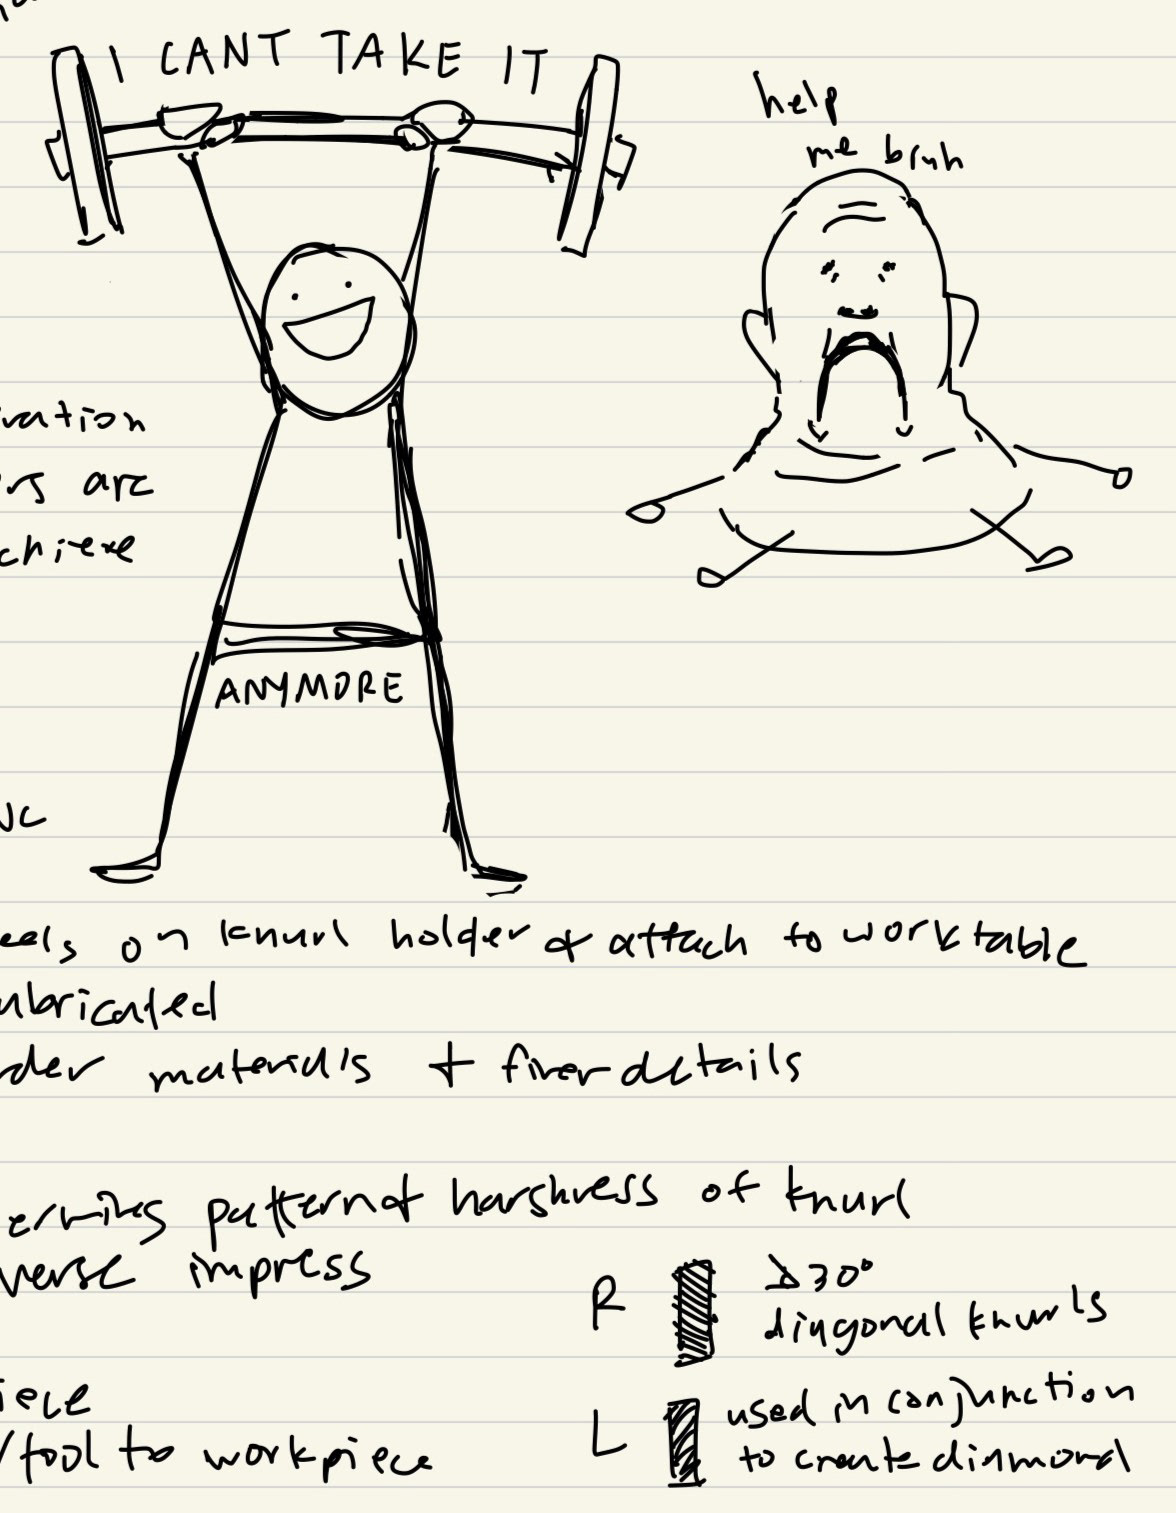 I CANT TAKE IT
help
me bruh
ration
rs are
chieve
ANYMORE
NC
eels on knurl holder & attach to worktable
ubricated
rder materials + finer details
ermines pattern & harshness of knurl
verse impress
R
30°
diagonal knurls
iece
L
used in conjunction
/tool to workpiece
to create diamond